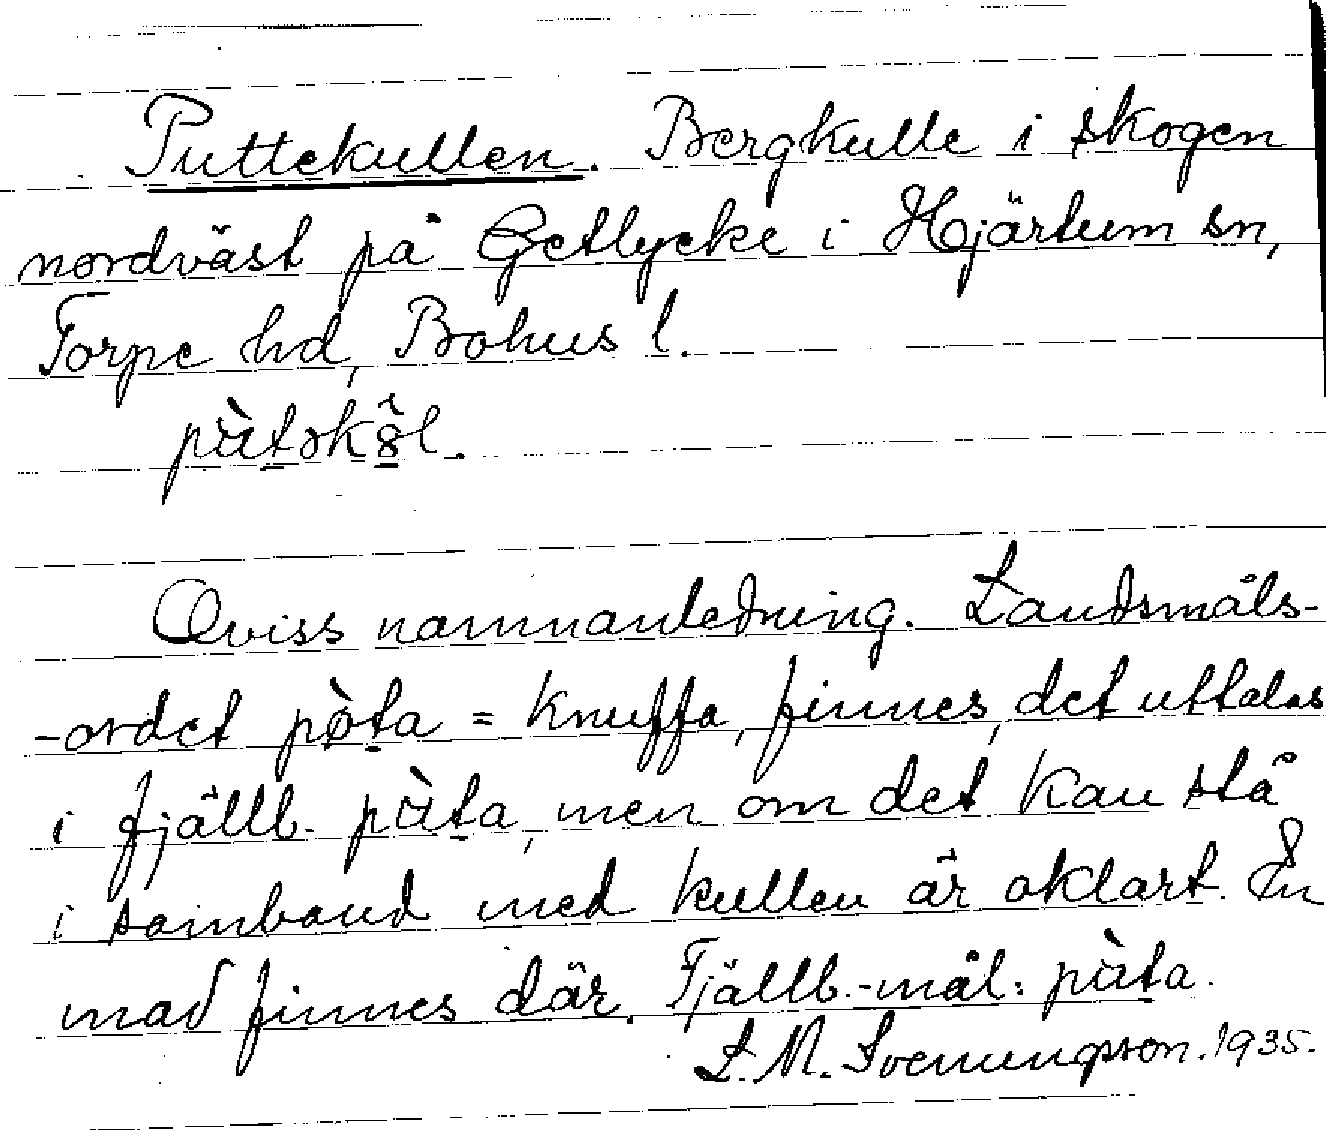 Puttekullen. Bergkulle i skogen
nordväst på Getlycke i Hjärtum sn,
Torpe hd, Bohus l.
pùtək8̂l.
Oviss namnanledning. Landsmåls-
-ordet pòta = knuffa, finnes, det uttalas
i fjällb. pùta, men om det kan stå
i samband med kullen är oklart. En
mad finnes där. Fjällb.-mål: pùta.
L. M. Svenungsson. 1935.